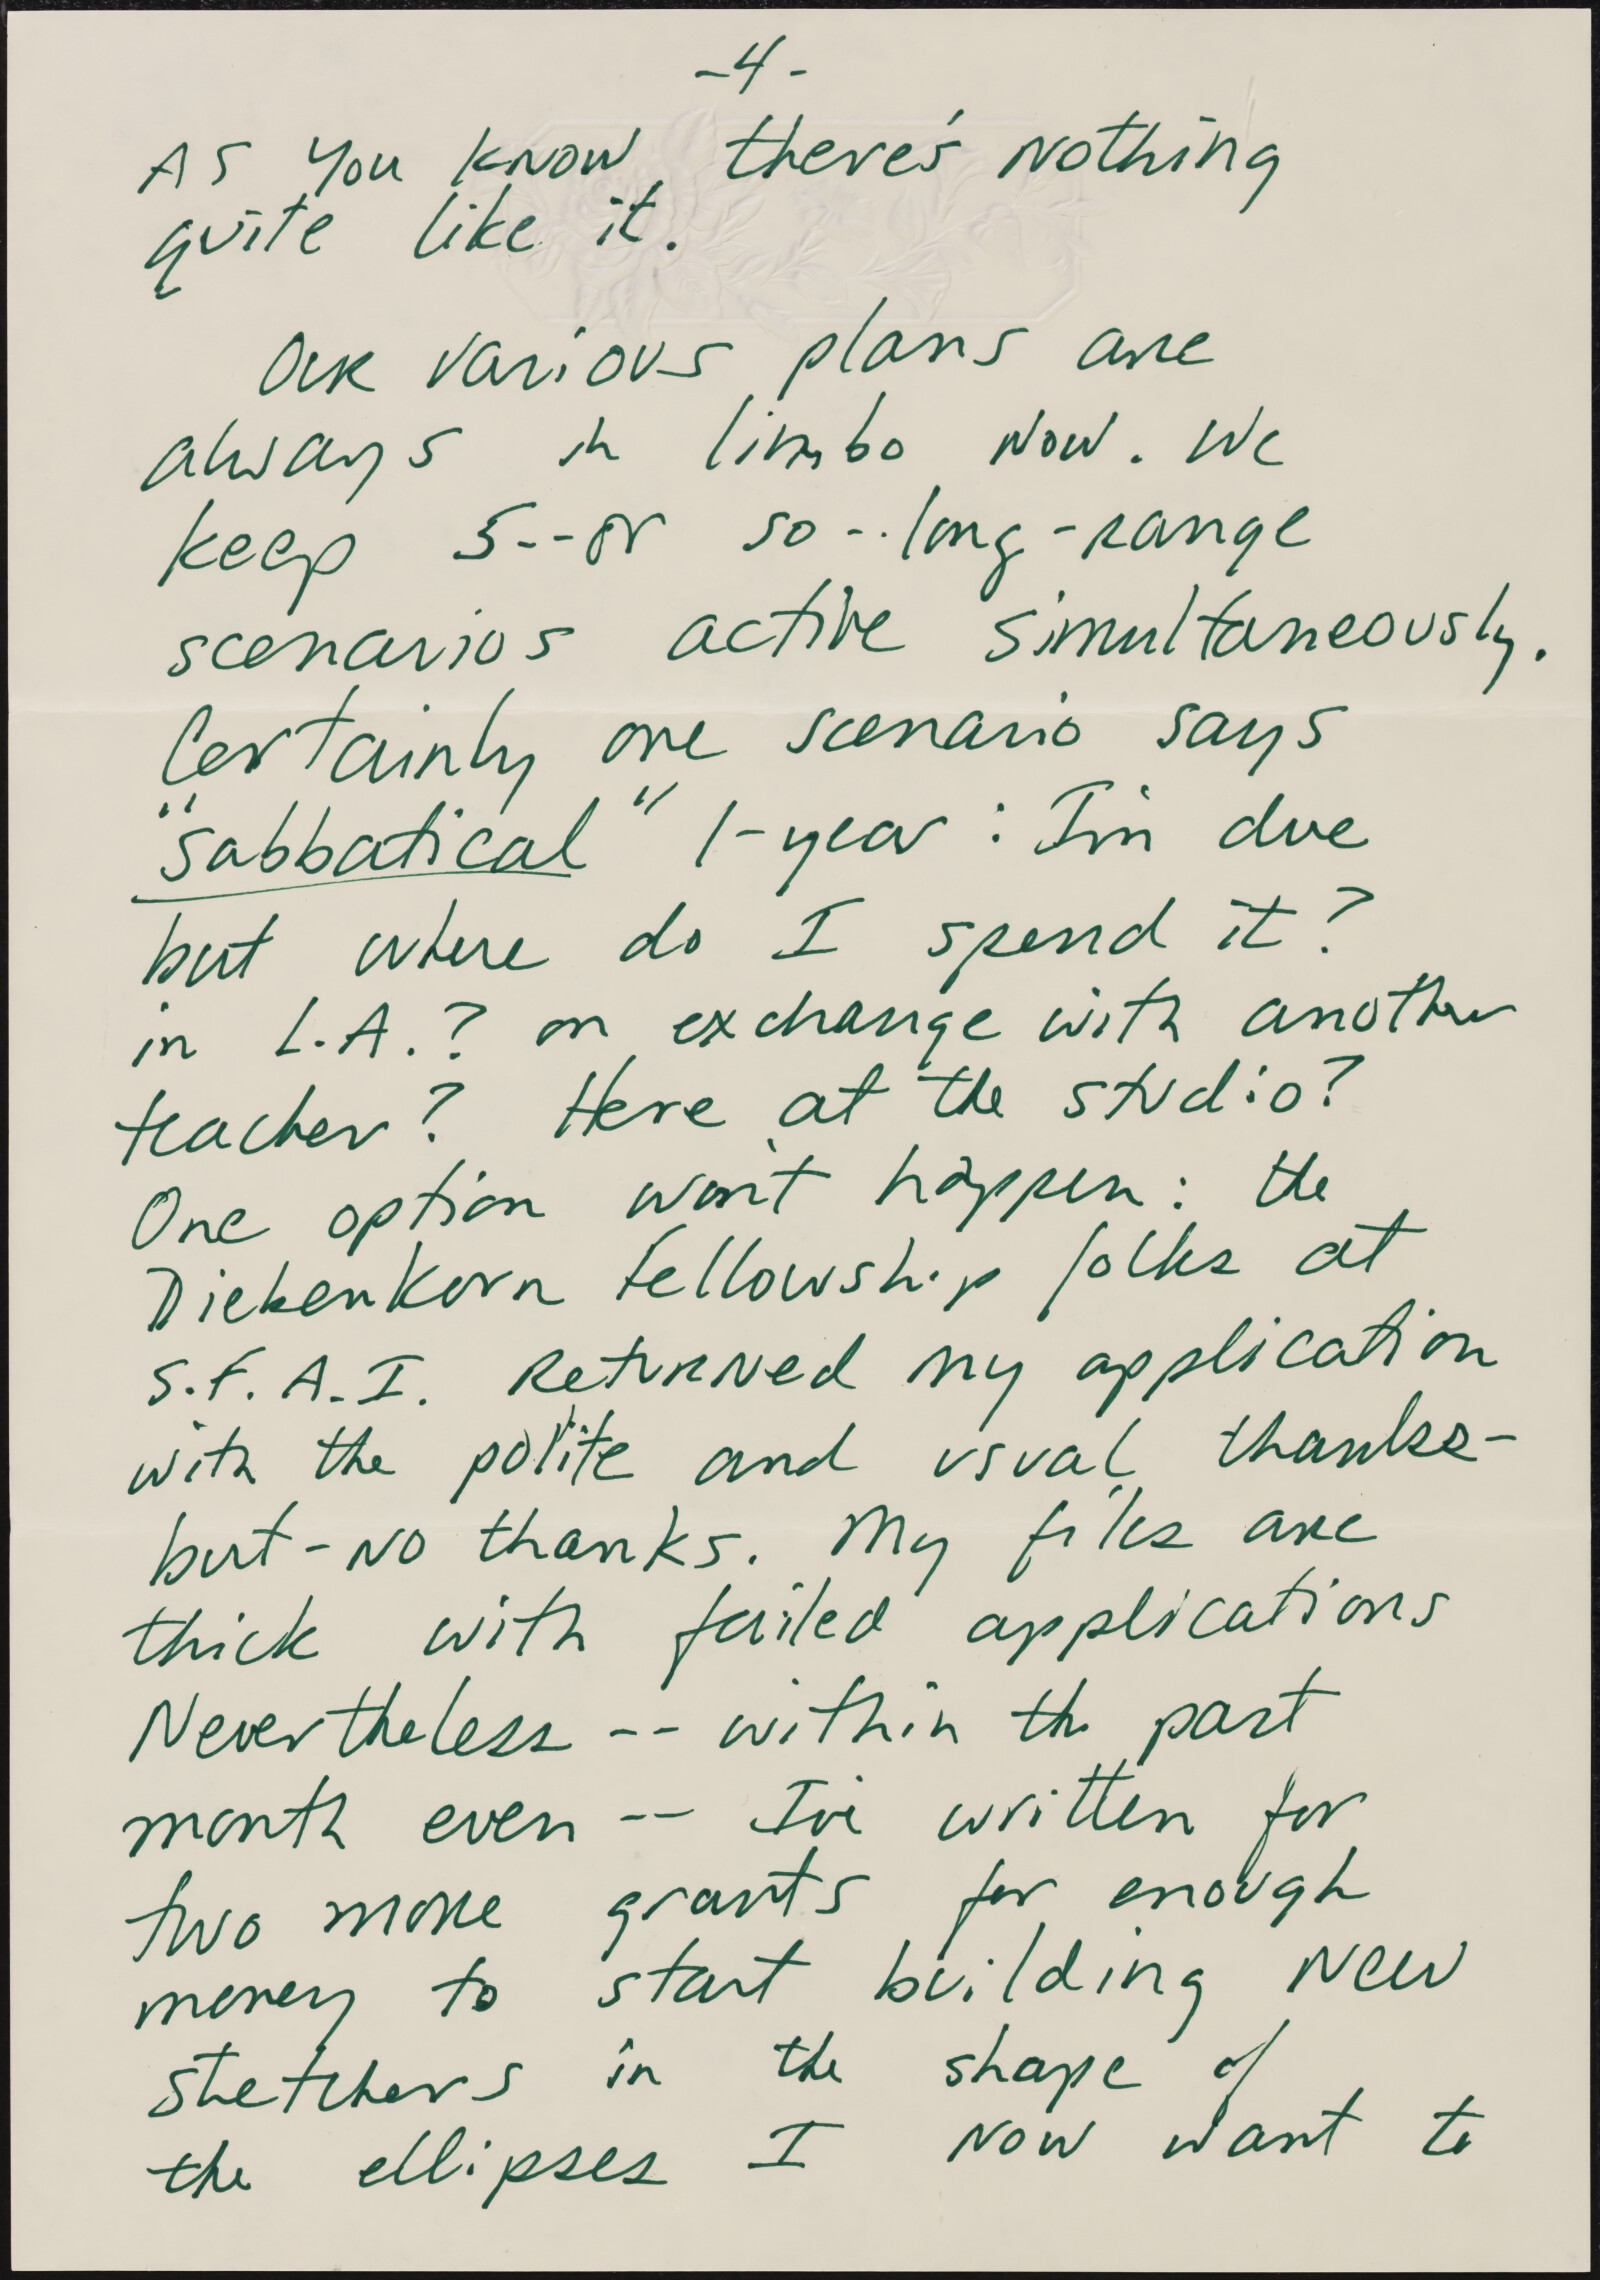 -4-
As you know there's nothing
quite like it.
Our various plans are
always in limbo now. We
keep 5--or so--long-range
scenarios active simultaneously.
Certainly one scenario says
"sabbatical" 1-year: I'm due
but where do I spend it?
in L.A.? on exchange with another
teacher? Here at the studio?
One option won't happen: the
Diebenkorn Fellowship folks at
S.F.A.I. returned my application
with the polite and usual thanks-
but-no thanks. My files are
thick with failed applications
Nevertheless -- within the past
month even -- I've written for
two more grants for enough
money to start building new
stretchers in the shape of
the ellipses I now want to